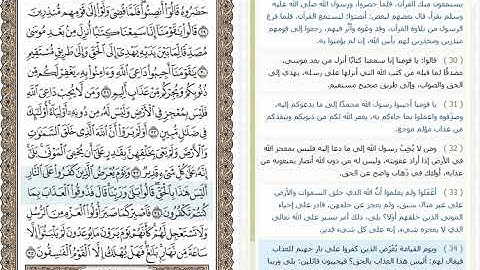 يستمعون منك القرآن، فلما حضروا، ورسول الله صلى الله عليه
وسلم يقرأ، قال بعضهم لبعض: أنصتوا؛ لنستمع القرآن، فلما فرغ
الرسول من تلاوة القرآن، وقد وعَوه وأثَّر فيهم، رجعوا إلى قومهم
منذرين ومحذرين لهم بأس الله، إن لم يؤمنوا به.
( 30 ) قالوا: يا قومنا إنا سمعنا كتابًا أنزل من بعد موسى،
مصدقًا لما قبله من كتب الله التي أنزلها على رسله، يهدي إلى
الحق والصواب، وإلى طريق صحيح مستقيم.
( 31 ) يا قومنا أجيبوا رسول الله محمدًا إلى ما يدعوكم إليه،
وصدِّقوه واعملوا بما جاءكم به، يغفر الله لكم من ذنوبكم وينقذكم
من عذاب مؤلم موجع.
( 32 ) ومن لا يُجِبْ رسول الله إلى ما دعا إليه فليس بمعجز الله
في الأرض إذا أراد عقوبته، وليس له من دون الله أنصار يمنعونه من
عذابه، أولئك في ذهاب واضح عن الحق.
( 33 ) أغَفَلوا ولم يعلموا أنَّ الله الذي خلق السموات والأرض
على غير مثال سبق، ولم يعجز عن خلقهن، قادر على إحياء
الموتى الذين خلقهم أوّلا؟ بلى، ذلك أمر يسير على الله تعالى
الذي لا يعجزه شيء، إنه على كل شيء قدير.
( 34 ) ويوم القيامة يُعْرَض الذين كفروا على نار جهنم للعذاب
فيقال لهم: أليس هذا العذاب بالحق؟ فيجيبون قائلين: بلى وربنا
حَضَرُوهُ قَالُوٓا۟ أَنصِتُوا۟ فَلَمَّا قُضِىَ وَلَّوْا۟ إِلَىٰ قَوْمِهِم مُّنذِرِينَ
٢٩ قَالُوا۟ يَٰقَوْمَنَآ إِنَّا سَمِعْنَا كِتَٰبًا أُنزِلَ مِنۢ بَعْدِ مُوسَىٰ
مُصَدِّقًا لِّمَا بَيْنَ يَدَيْهِ يَهْدِىٓ إِلَى ٱلْحَقِّ وَإِلَىٰ طَرِيقٍ مُّسْتَقِيمٍ
٣٠ يَٰقَوْمَنَآ أَجِيبُوا۟ دَاعِىَ ٱللَّهِ وَءَامِنُوا۟ بِهِۦ يَغْفِرْ لَكُم مِّن
ذُنُوبِكُمْ وَيُجِرْكُم مِّنْ عَذَابٍ أَلِيمٍ ٣١ وَمَن لَّا يُجِبْ دَاعِىَ ٱللَّهِ
فَلَيْسَ بِمُعْجِزٍ فِى ٱلْأَرْضِ وَلَيْسَ لَهُۥ مِن دُونِهِۦٓ أَوْلِيَآءُ أُو۟لَٰٓئِكَ
فِى ضَلَٰلٍ مُّبِينٍ ٣٢ أَوَلَمْ يَرَوْا۟ أَنَّ ٱللَّهَ ٱلَّذِى خَلَقَ ٱلسَّمَٰوَٰتِ
وَٱلْأَرْضَ وَلَمْ يَعْىَ بِخَلْقِهِنَّ بِقَٰدِرٍ عَلَىٰٓ أَن يُحْۦِىَ ٱلْمَوْتَىٰ بَلَىٰٓ
إِنَّهُۥ عَلَىٰ كُلِّ شَىْءٍ قَدِيرٌ ٣٣ وَيَوْمَ يُعْرَضُ ٱلَّذِينَ كَفَرُوا۟ عَلَى ٱلنَّارِ
أَلَيْسَ هَٰذَا بِٱلْحَقِّ قَالُوا۟ بَلَىٰ وَرَبِّنَا قَالَ فَذُوقُوا۟ ٱلْعَذَابَ بِمَا
كُنتُمْ تَكْفُرُونَ ٣٤ فَٱصْبِرْ كَمَا صَبَرَ أُو۟لُوا۟ ٱلْعَزْمِ مِنَ ٱلرُّسُلِ
وَلَا تَسْتَعْجِل لَّهُمْ كَأَنَّهُمْ يَوْمَ يَرَوْنَ مَا يُوعَدُونَ لَمْ يَلْبَثُوٓا۟ إِلَّا
سَاعَةً مِّن نَّهَارٍۭ بَلَٰغٌ فَهَلْ يُهْلَكُ إِلَّا ٱلْقَوْمُ ٱلْفَٰسِقُونَ ٣٥